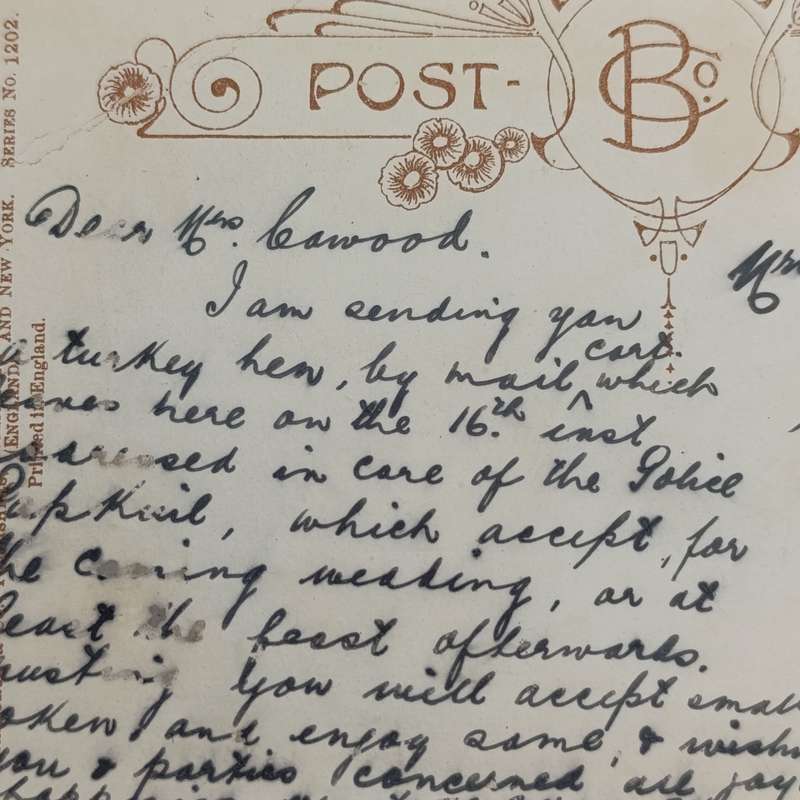 POST-
B Co.
SERIES No. 1202.
(ENGLAND) AND NEW YORK.
Printed in England.
Dear Mrs. Cawood.
Mrs
I am sending you
a turkey hen, by mail ^ cart. which
leaves here on the 16.th inst
addressed in care of the Police
apkuil, which accept, for
he coming wedding, or at
least the feast afterwards.
rusting you will accept small
oken and enjoy same, & wish
you & parties concerned all joy